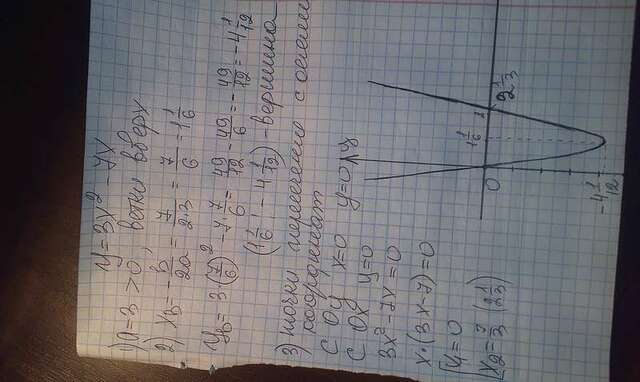 y = 3x² - 7x
1) a = 3 > 0, ветки вверх
2) x_в = -b/2a = 7/2·3 = 7/6 = 1 1/6
y_в = 3·(7/6)² - 7·7/6 = 49/12 - 49/6 = -49/12 = -4 1/12
(1 1/6; -4 1/12) - вершина
3) точки пересечения с осями
координат
с oy x=0 y=0
с ox y=0
3x² - 7x = 0
x·(3x-7) = 0
[x₁ = 0
[x₂ = 7/3 (2 1/3)
y
x
0
1 1/6
1
2 1/3
-4 1/12